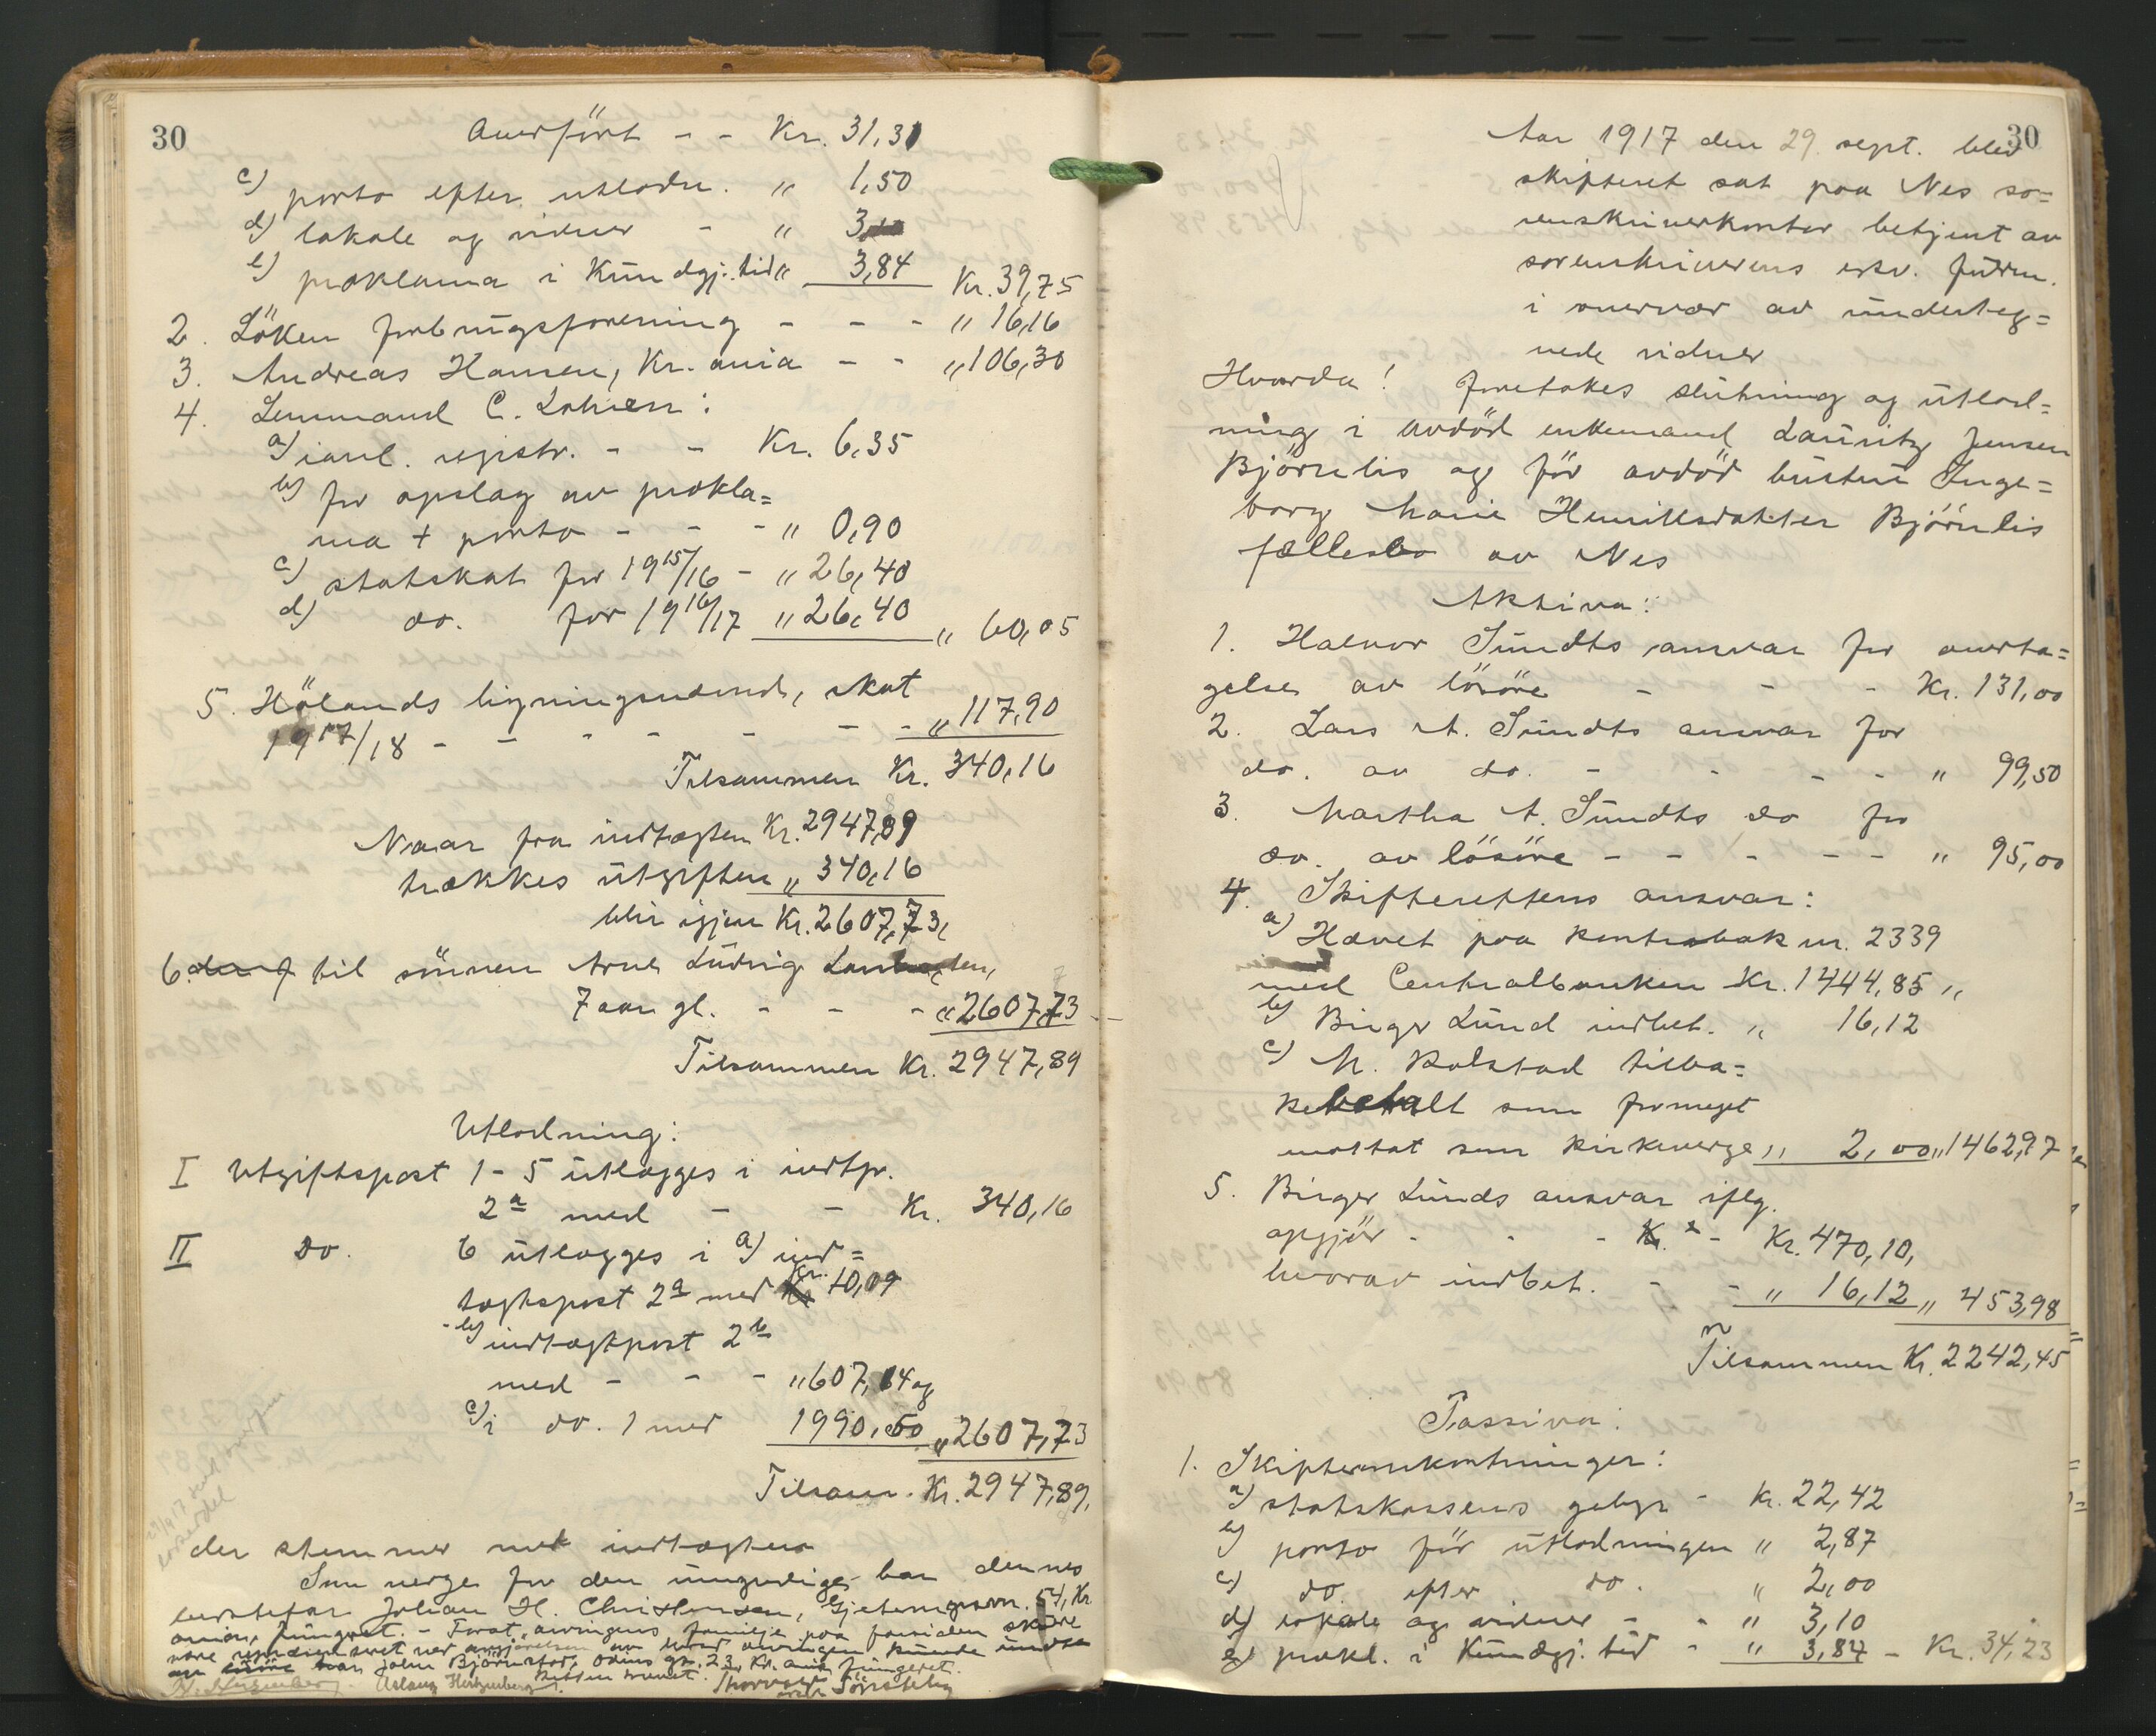 30
Overført - - Kr. 31,31
c) porto efter utlodn. " 1,50
d) lokale og vidner - " 3,10
e) proklama i Kundgj. tid " 3,84 Kr. 39,75
2. Löken forbrugsforening - - - " 16,16
3. Andreas Hansen, Kr.ania - - " 106,30
4. Lensmand C. Lohren:
a) ianl. registr. - - Kr. 6,35
b) for opslag av prokla=
ma + porto - - - " 0,90
c) statskat for 1915/16 - " 26,40
d) do. for 1916/17 " 26,40 " 60,05
5. Hölands ligningsnævnd, skat
1917/18 - - - - - - - " 117,90
Tilsammen Kr. 340,16
Naar fra indtægten Kr. 2947,89
trækkes utgiften " 340,16
blir igjen Kr. 2607,73,
6. til sönnen Arne Ludvig
7 aar gl. - - - " 2607,73
Tilsammen Kr. 2947,89
Utlodning:
I Utgiftspost 1-5 utlægges i indtp.
2a med - - Kr. 340,16
II Do. 6 utlægges i a) ind=
tægtspost 2a med Kr. 10,09
b) indtægtpost 2b
med - - - " 607,14 og
c) i do. 1 med 1990,50 " 2607,73
Tilsam. Kr. 2947,89,
der stemmer med indtægten
Som verge for den umyndige har dennes
morfar Johan H. Christensen, Gjetemyrsvn. 54, Kr.
ania, fungeret. - Forat arvingens familje paa farsiden skulde
være repræsenteret ved avgjørelsen av hvad arvingen kunde undta
av har John Björnstad, Odins gt. 23, Kr.ania fungeret.
Retten hævet.
Aslaug Hertzenberg Thorvald
30
Aar 1917 den 29. sept. blev
skifteret sat paa Nes so=
renskriverkontor betjent av
sorenskriverens eksv. fuldm.
i overvær av underteg=
nede vidner
Hvorda! foretokes slutning og utlod=
ning i avdöd enkemand Lauritz Jensen
Björnlis og för avdöd hustru Inge=
borg Marie Henriksdatter Björnlis
fællesbo av Nes
Aktiva:
1. Halvor Sundts ansvar for overta=
gelse av lösöre - - - Kr. 131,00
2. Lars A. Sundts ansvar for
do. av do. - - - - " 99,50
3. Martha A. Sundts do for
do. av lösöre - - - - - " 95,00
4. Skifterettens ansvar:
a) Hævet paa kontrabok nr. 2339
med Centralbanken Kr. 1444,85 "
b) Birger Lund indbet. " 16,12
c) M. Rolstad tilba=
kebetalt som formeget
mottat som kirkeverge " 2,00 " 1462,97
5. Birger Lunds ansvar iflg.
opgjör - - - - Kr. 470,10,
hvorav indbet. - - " 16,12 " 453,98
Tilsammen Kr. 2242,45
Passiva:
1. Skifteomkostninger:
a) statskassens gebyr - Kr. 22,42
b) porto för utlodningen " 2,87
c) do. efter do. " 2,00
d) lokale og vidner - - " 3,10
e) prokl. i Kundgj. tid - " 3,84 - Kr. 34,23